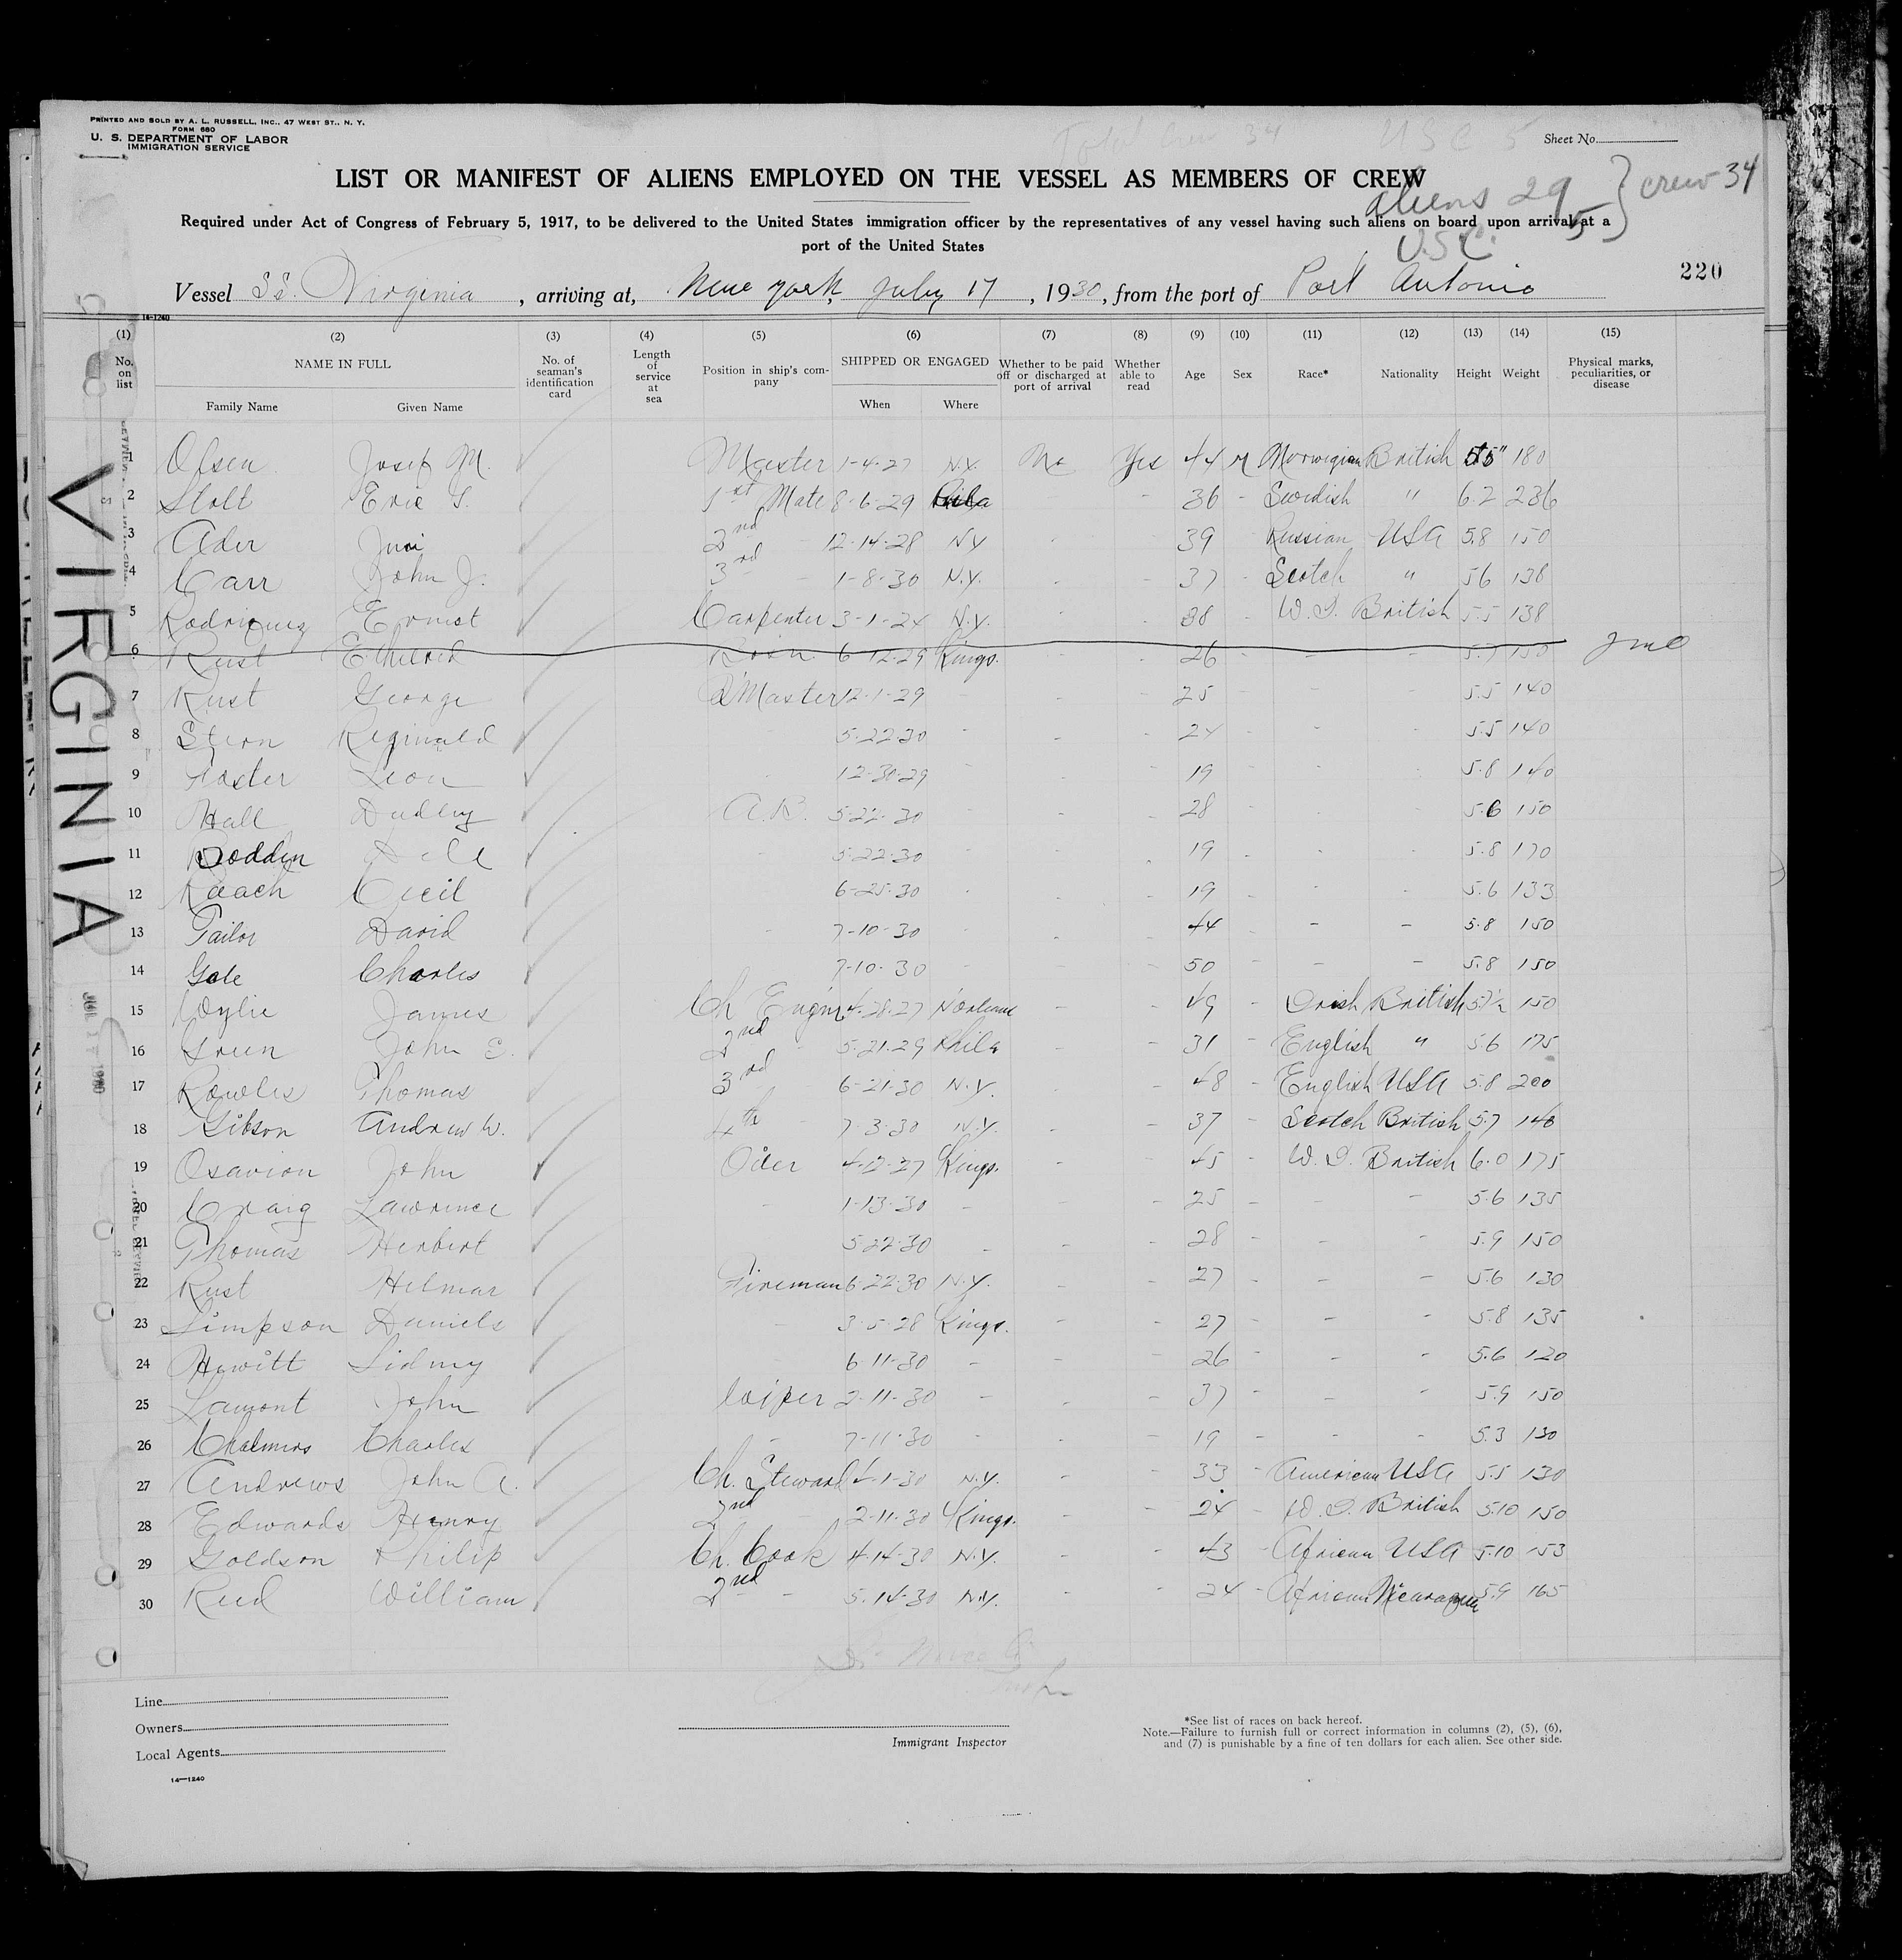 PRINTED AND SOLD BY A. L. RUSSELL, INC., 47 WEST ST., N. Y.
FORM 680
U. S. DEPARTMENT OF LABOR
IMMIGRATION SERVICE
Total Crew 34 USC 5
Sheet No.
LIST OR MANIFEST OF ALIENS EMPLOYED ON THE VESSEL AS MEMBERS OF CREW
aliens 29 } crew 34
USC. 5
Required under Act of Congress of February 5, 1917, to be delivered to the United States immigration officer by the representatives of any vessel having such aliens on board upon arrival at a
port of the United States
220
Vessel SS. Virginia, arriving at, New York, July 17, 1930, from the port of Port Antonio
14-1240
(1) (2) (3) (4) (5) (6) (7) (8) (9) (10) (11) (12) (13) (14) (15)
No. on list NAME IN FULL No. of seaman's identification card Length of service at sea Position in ship's company SHIPPED OR ENGAGED Whether to be paid off or discharged at port of arrival Whether able to read Age Sex Race* Nationality Height Weight Physical marks, peculiarities, or disease
Family Name Given Name When Where
VIRGINIA
1 Olsen Josef M. Master 1-4-27 N.Y. No Yes 44 M Norwigian British 180
2 Stolt Eric S. 1st Mate 8-6-29 Phila - 36 - Swedish " 6.2 236
3 Ader Juri 2nd - 12-14-28 NY - - 39 Russian USA 5.8 150
4 Carr John J. 3rd - 1-8-30 N.Y. - - 37 - Scotch " 56 138
5 Rodriquez Ernest Carpenter 3-1-24 N.Y. - - 38 W.I. British 5.5 138
6 Rust Ethelred Bosn 6-12-29 Kings. - - 26 - - - 5.7 150
7 Rust George Q'Master 12-1-29 - - - 25 5.5 140
8 Stern Reginald 5-22-30 - - - 24 - - - 5.5 140
9 Foster Leon - 12-30-29 - - - 19 - - - 5.8 140
10 Hall Dudley A.B. 5-22-30 - - - 28 - - - 5.6 150
11 Bodden - 5-22-30 - - - 19 - - - 5.8 170
12 Roach Cecil 6-25-30 - - - 19 - - - 5.6 133
13 Tailor David - 7-10-30 - - 44 - - - 5.8 150
14 Gale Charles 7-10-30 - - - 50 - - - 5.8 150
15 Wylie James Ch Engnr 4-28-27 N'Orleans - - 49 - Irish British 5.7½ 150
16 Green John E. 2nd - 5-21-29 Phila - - 31 - English " 5.6 175
17 Rowles Thomas 3rd 6-21-30 N.Y. - - 48 - English USA 5.8 200
18 Gibson Andrew W. 4th - 7-3-30 N.Y. - - 37 - Scotch British 5.7 140
19 Osavion John Oiler 4-12-27 Kings. - - 45 - W.I. British 6.0 175
20 Craig Lawrence - 1-13-30 - - - 25 - - - 5.6 135
21 Thomas Herbert 5-22-30 - - - 28 - - - 5.9 150
22 Rust Helmar Fireman 6-22-30 N.Y. - - 27 - - - 5.6 130
23 Simpson Daniels - 3-5-28 Kings. - - 27 - - 5.8 135
24 Hewitt Sidney 6-11-30 - - - 26 - - - 5.6 120
25 Lamont John Wiper 2-11-30 - - - 37 - - - 5.9 150
26 Chalmers Charles - 7-11-30 - - - 19 - - - 5.3 130
27 Andrews John A. Ch. Steward 4-1-30 N.Y. - - 33 - American USA 5.5 130
28 Edwards Henry 2nd - 2-11-30 Kings. - - 24 - W.I. British 5.10 150
29 Goldson Philip Ch. Cook 4-14-30 N.Y. - - 43 - African USA 5.10 153
30 Reed William 2nd - 5-14-30 N.Y. - - 24 - African Nicaragua 5.9 165
Line
Owners
Local Agents
Immigrant Inspector
*See list of races on back hereof.
Note.—Failure to furnish full or correct information in columns (2), (5), (6),
and (7) is punishable by a fine of ten dollars for each alien. See other side.
14—1240